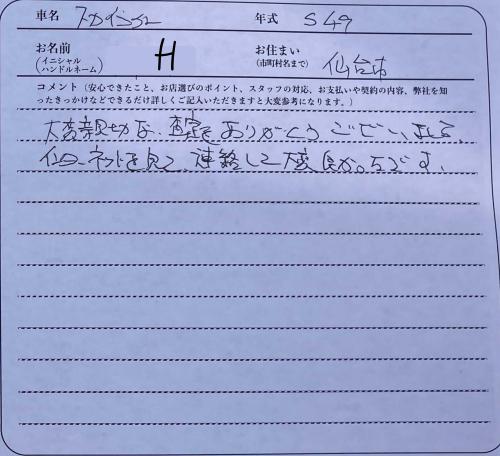 車名 スカイライン 年式 S49
お名前 (イニシャル ハンドルネーム) H お住まい (市町村名まで) 仙台市
コメント（安心できたこと、お店選びのポイント、スタッフの対応、お支払いや契約の内容、弊社を知
ったきっかけなどできるだけ詳しくご記入いただきますと大変参考になります。）
大変親切な、査定をありがとうございました。
インターネットを見て、連絡して大変良かったです。